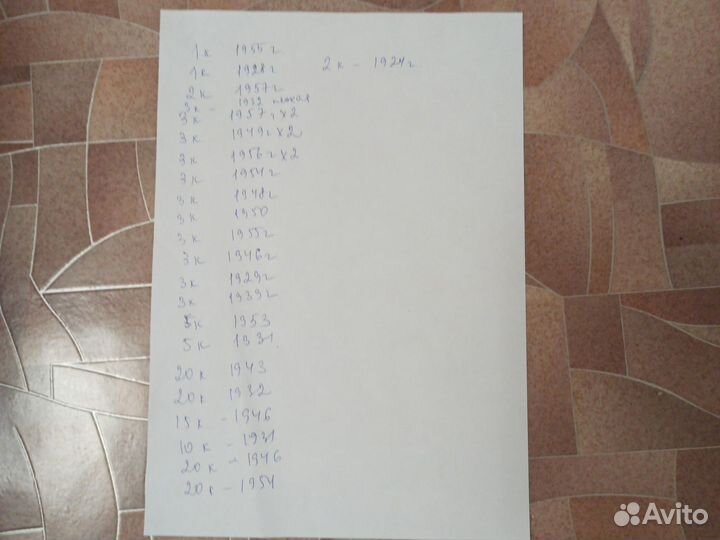 1к 1955г
1к 1928г
2к – 1924г.
2к 1957г
3к – 1932 плохая
3к 1957г х2
3к 1949г х2
3к 1956г х2
3к 1954г
3к 1948г
3к 1950
3к 1955г
3к 1946г
3к 1929г
3к 1939г
5к 1953
5к 1931.
20к 1943
20к 1932
15к – 1946
10к – 1931
20к – 1946
20к – 1954
Avito